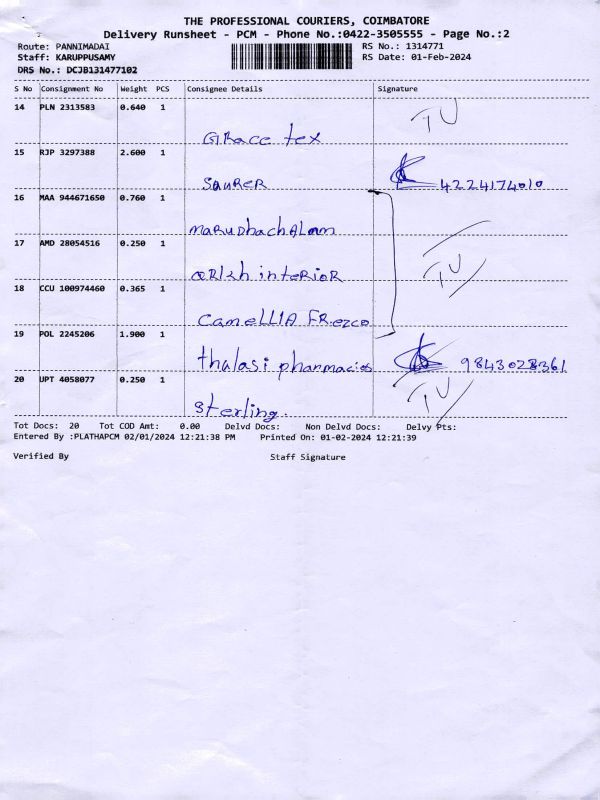 THE PROFESSIONAL COURIERS, COIMBATORE
Delivery Runsheet - PCM - Phone No.:0422-3505555 - Page No.:2
Route: PANNIMADAI RS No.: 1314771
Staff: KARUPPUSAMY RS Date: 01-Feb-2024
DRS No.: DCJB131477102
S No Consignment No Weight PCS Consignee Details Signature
14 PLN 2313583 0.640 1 TU
Grace tex
15 RJP 3297388 2.600 1
SaURER 4224174010
16 MAA 944671650 0.760 1
maRuDhachALam
17 AMD 28054516 0.250 1 TU
interiOR
18 CCU 100974460 0.365 1
CameLLIA FRezco
19 POL 2245206 1.900 1
thalasi pharmacies 9843028361
20 UPT 4058077 0.250 1 TU
Sterling.
Tot Docs: 20 Tot COD Amt: 0.00 Delvd Docs: Non Delvd Docs: Delvy Pts:
Entered By :PLATHAPCM 02/01/2024 12:21:38 PM Printed On: 01-02-2024 12:21:39
Verified By Staff Signature